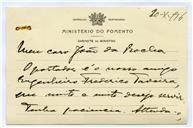 20-X-916
MINISTÉRIO DO FOMENTO
GABINETE DO MINISTRO
Meu caro João da Rocha
O portador é o nosso amigo
Engenheiro Frederico Taveira,
que muito e muito desejo servir.
Tenha paciencia. Attenda-